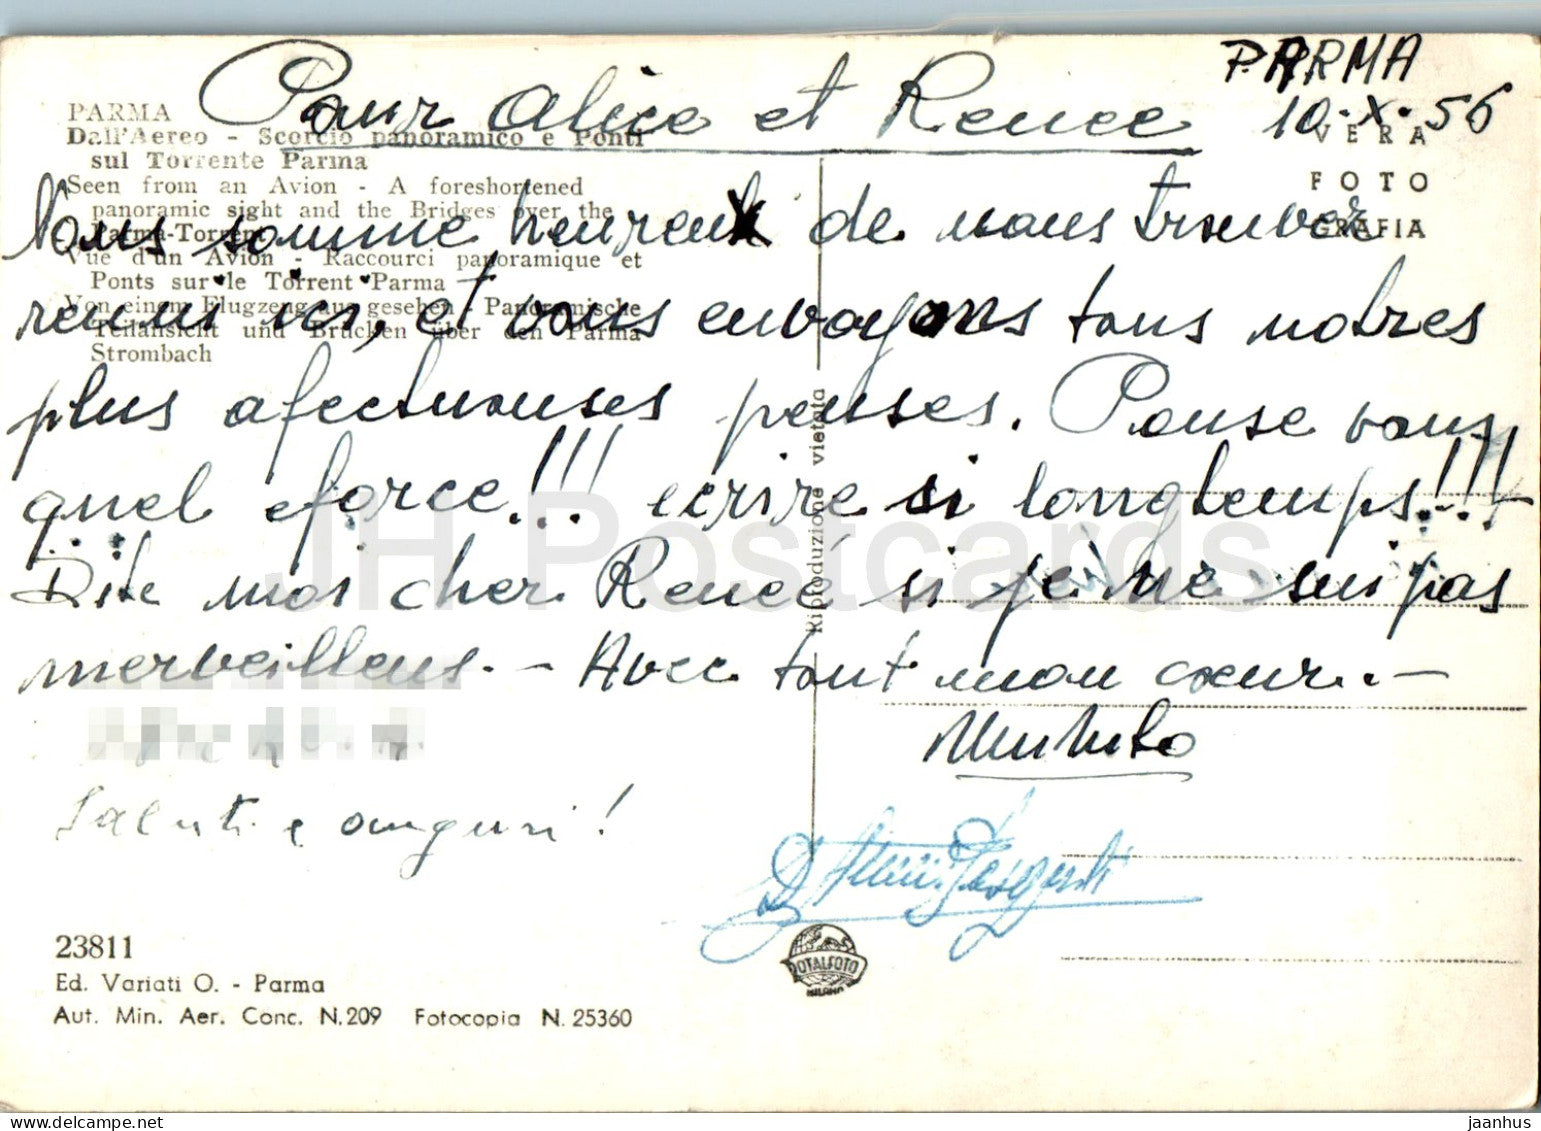 PARMA
10-X-56
Pour Alice et Renee
PARMA
Dall'Aereo - Scorcio panoramico e Ponti
sul Torrente Parma
Seen from an Avion - A foreshortened
panoramic sight and the Bridges over the
Parma-Torrent
Vue d'un Avion - Raccourci panoramique et
Ponts sur le Torrent Parma
Von einem Flugzeug aus gesehen - Panoramische
Teilansicht und Brücken über den Parma
Strombach
VERA
FOTO
GRAFIA
Nous somme heureux de nous trouver
reuni ici, et vous envoyons tous notres
plus afectuouses penses. Pense vous
quel eforce!!! ecrire si longtemps!!!
Dite moi cher Reneé si je ne sui pas
merveilleus. - Avec tout mon cœur. -
Saluti e auguri!
Riproduzione vietata
23811
Ed. Variati O. - Parma
Aut. Min. Aer. Conc. N. 209 Fotocopia N. 25360
ROTALFOTO
MILANO
JH Postcards
jaanhus @ delcampe.net